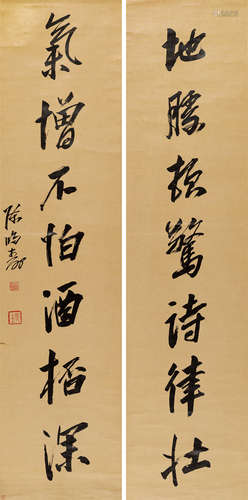 地勝頓驚詩律壯
氣增不怕酒桮深
陳鴻壽